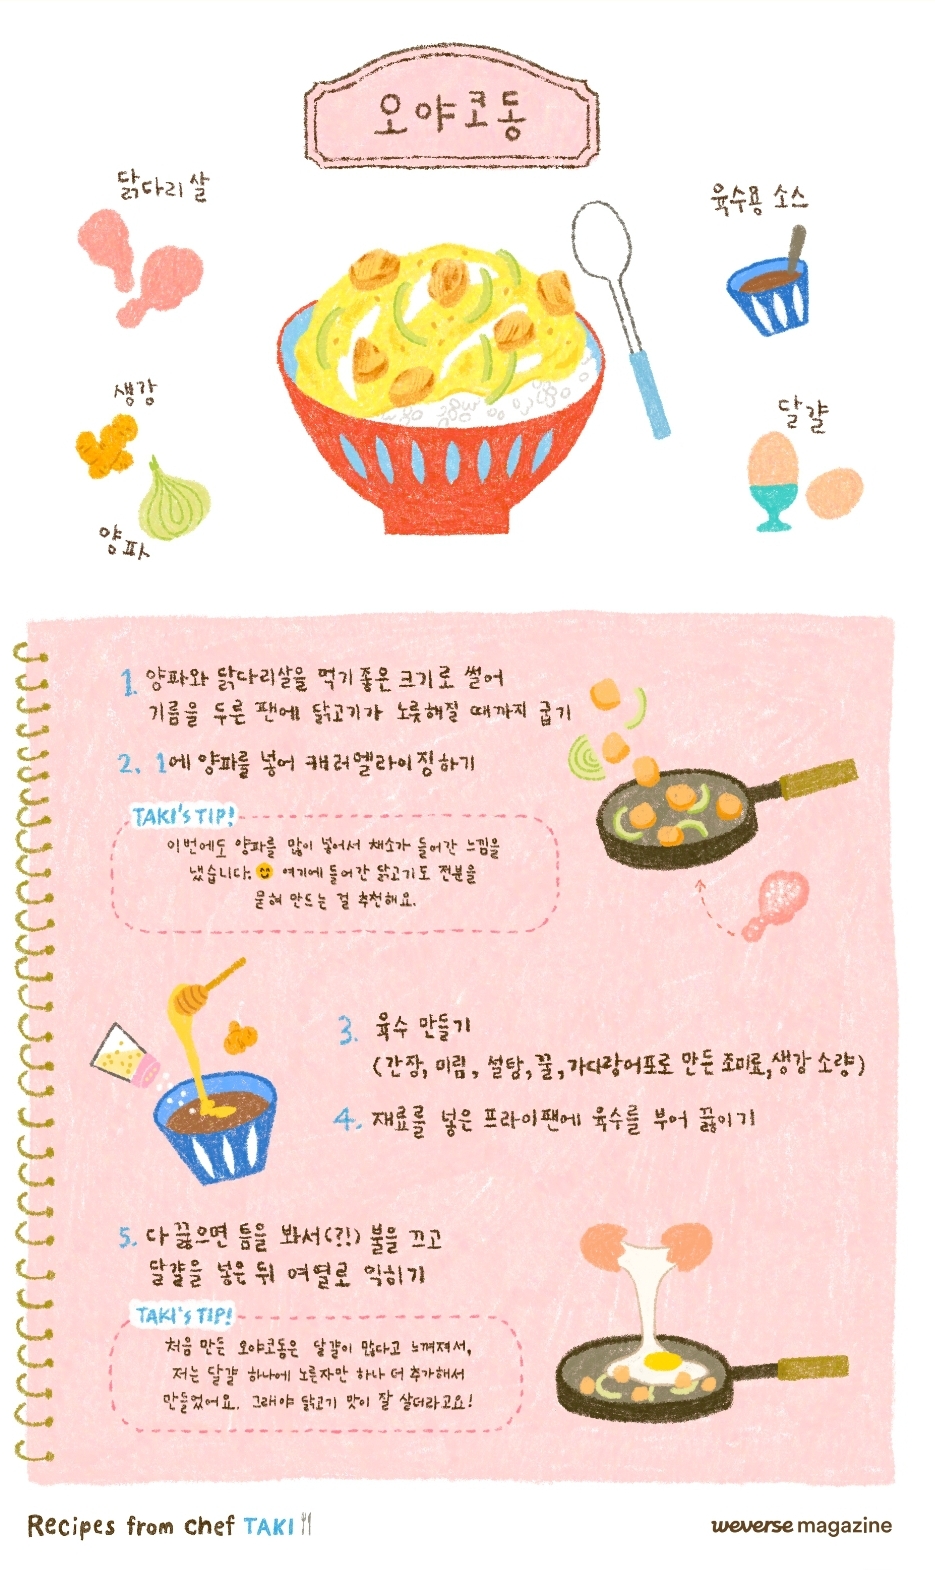 오야코동
닭다리 살
육수용 소스
생강
달걀
양파
1. 양파와 닭다리살을 먹기 좋은 크기로 썰어
기름을 두른 팬에 닭고기가 노릇해질 때까지 굽기
2. 1에 양파를 넣어 캐러멜라이징하기
TAKI's TIP!
이번에도 양파를 많이 넣어서 채소가 들어간 느낌을
냈습니다. 😊 여기에 들어간 닭고기도 전분을
묻혀 만드는 걸 추천해요.
3. 육수 만들기
(간장, 미림, 설탕, 꿀, 가다랑어포로 만든 조미료, 생강 소량)
4. 재료를 넣은 프라이팬에 육수를 부어 끓이기
5. 다 끓으면 틈을 봐서(?!) 불을 끄고
달걀을 넣은 뒤 여열로 익히기
TAKI's TIP!
처음 만든 오야코동은 달걀이 많다고 느껴져서,
저는 달걀 하나에 노른자만 하나 더 추가해서
만들었어요. 그래야 닭고기 맛이 잘 살더라고요!
Recipes from chef TAKI
weverse magazine